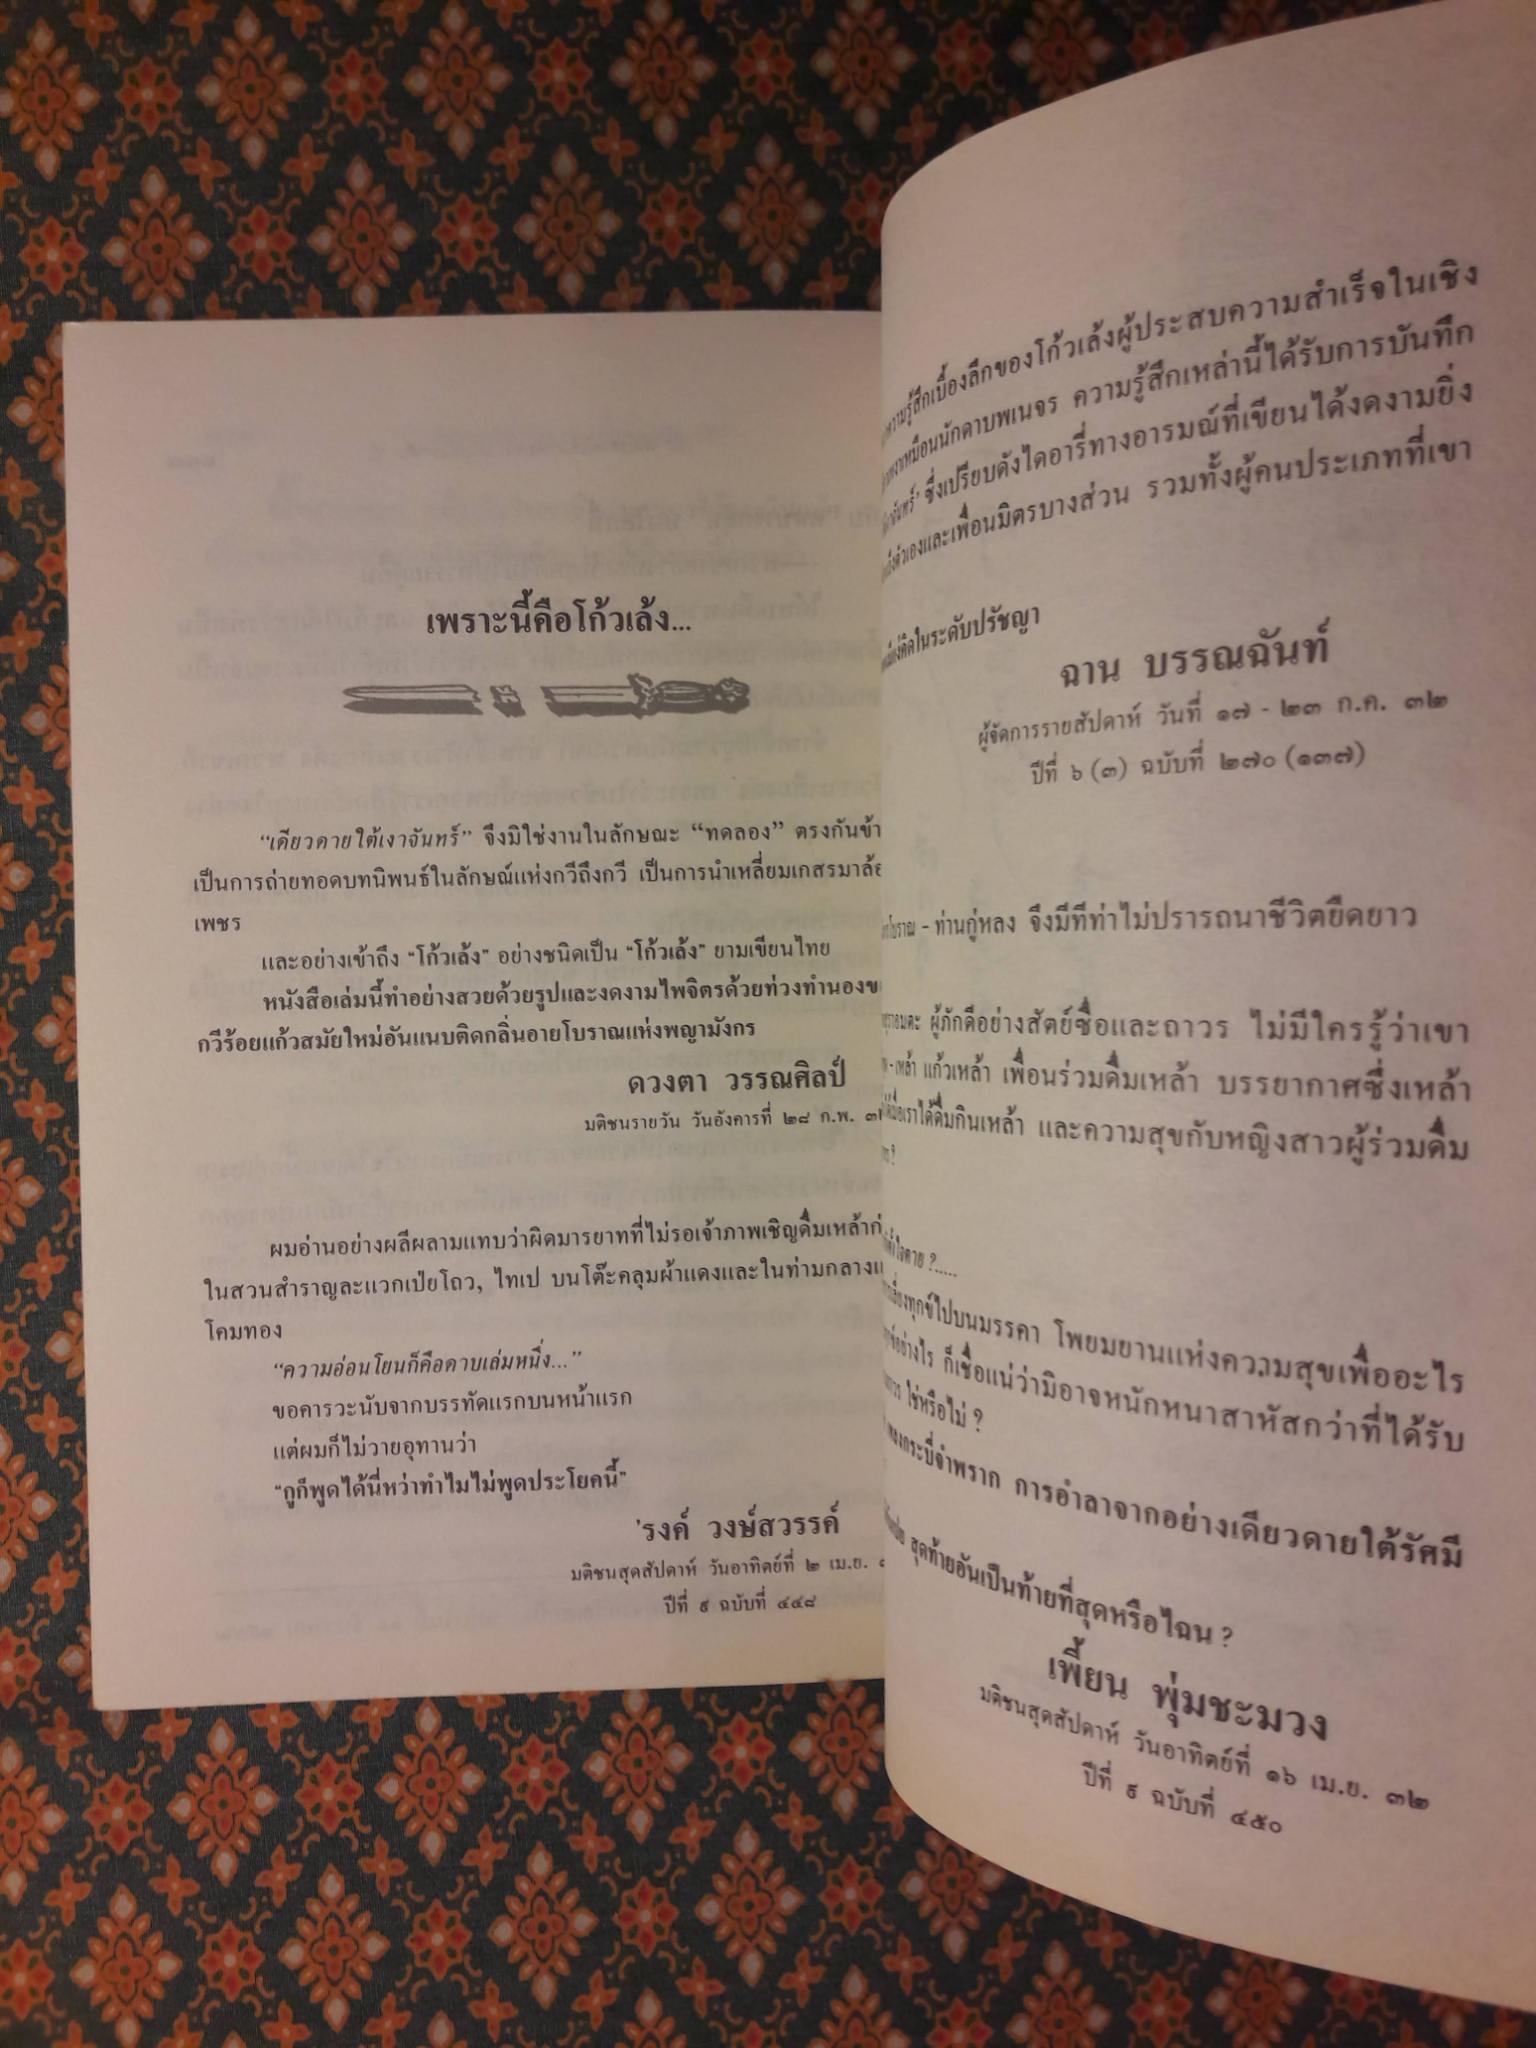 เพราะนี้คือโก้วเล้ง...
“เดียวดายใต้เงาจันทร์” จึงมิใช่งานในลักษณะ “ทดลอง” ตรงกันข้า
เป็นการถ่ายทอดบทนิพนธ์ในลักษณ์แห่งกวีถึงกวี เป็นการนำเหลี่ยมเกสรมาล้อ
เพชร
และอย่างเข้าถึง “โก้วเล้ง” อย่างชนิดเป็น “โก้วเล้ง” ยามเขียนไทย
หนังสือเล่มนี้ทำอย่างสวยด้วยรูปและงดงามไพจิตรด้วยท่วงทำนองข
กวีร้อยแก้วสมัยใหม่อันแนบติดกลิ่นอายโบราณแห่งพญามังกร
ดวงตา วรรณศิลป์
มติชนรายวัน วันอังคารที่ ๒๘ ก.พ.
ผมอ่านอย่างผลีผลามแทบว่าผิดมารยาทที่ไม่รอเจ้าภาพเชิญดื่มเหล้าก่
ในสวนสำราญละแวกเปัยโถว, ไทเป บนโต๊ะคลุมผ้าแดงและในท่ามกลางแ
โคมทอง
“ความอ่อนโยนก็คือดาบเล่มหนึ่ง...”
ขอคารวะนับจากบรรทัดแรกบนหน้าแรก
แต่ผมก็ไม่วายอุทานว่า
“กูก็พูดได้นี่หว่าทำไมไม่พูดประโยคนี้”
'รงค์ วงษ์สวรรค์
มติชนสุดสัปดาห์ วันอาทิตย์ที่ ๒ เม.ย.
ปีที่ ๙ ฉบับที่ ๔๔๘
ความรู้สึกเบื้องลึกของโก้วเล้งผู้ประสบความสำเร็จในเชิง
เหมือนนักดาบพเนจร ความรู้สึกเหล่านี้ได้รับการบันทึก
จันทร์’ ซึ่งเปรียบดังไดอารี่ทางอารมณ์ที่เขียนได้งดงามยิ่ง
ตัวเองและเพื่อนมิตรบางส่วน รวมทั้งผู้คนประเภทที่เขา
คิดในระดับปรัชญา
ฉาน บรรณฉันท์
ผู้จัดการรายสัปดาห์ วันที่ ๑๗ - ๒๓ ก.ค. ๓๒
ปีที่ ๖ (๓) ฉบับที่ ๒๗๐ (๑๓๗)
โบราณ - ท่านกู่หลง จึงมีทีท่าไม่ปรารถนาชีวิตยืดยาว
ผู้ภักดีอย่างสัตย์ซื่อและถาวร ไม่มีใครรู้ว่าเขา
- เหล้า แก้วเหล้า เพื่อนร่วมดื่มเหล้า บรรยากาศซึ่งเหล้า
เราได้ดื่มกินเหล้า และความสุขกับหญิงสาวผู้ร่วมดื่ม
?
ใจตาย ?.....
ทุกข์ไปบนมรรคา โพยมยานแห่งความสุขเพื่ออะไร
อย่างไร ก็เชื่อแน่ว่ามิอาจหนักหนาสาหัสกว่าที่ได้รับ
ใช่หรือไม่ ?
เพลงกระบี่จำพราก การอำลาจากอย่างเดียวดายใต้รัศมี
สุดท้ายอันเป็นท้ายที่สุดหรือไฉน ?
เพี้ยน พุ่มชะมวง
มติชนสุดสัปดาห์ วันอาทิตย์ที่ ๑๖ เม.ย. ๓๒
ปีที่ ๙ ฉบับที่ ๔๕๐